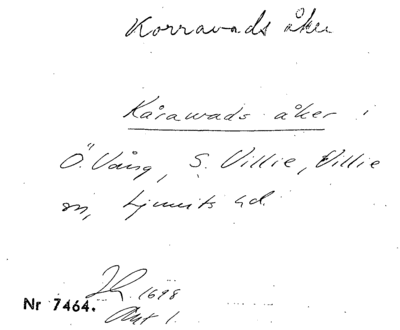 Korravads åker
Kårawads åker i
Ö. Vång, S. Villie, Villie
sn, Ljunits hd.
1698
Nr 7464. Akt 1.